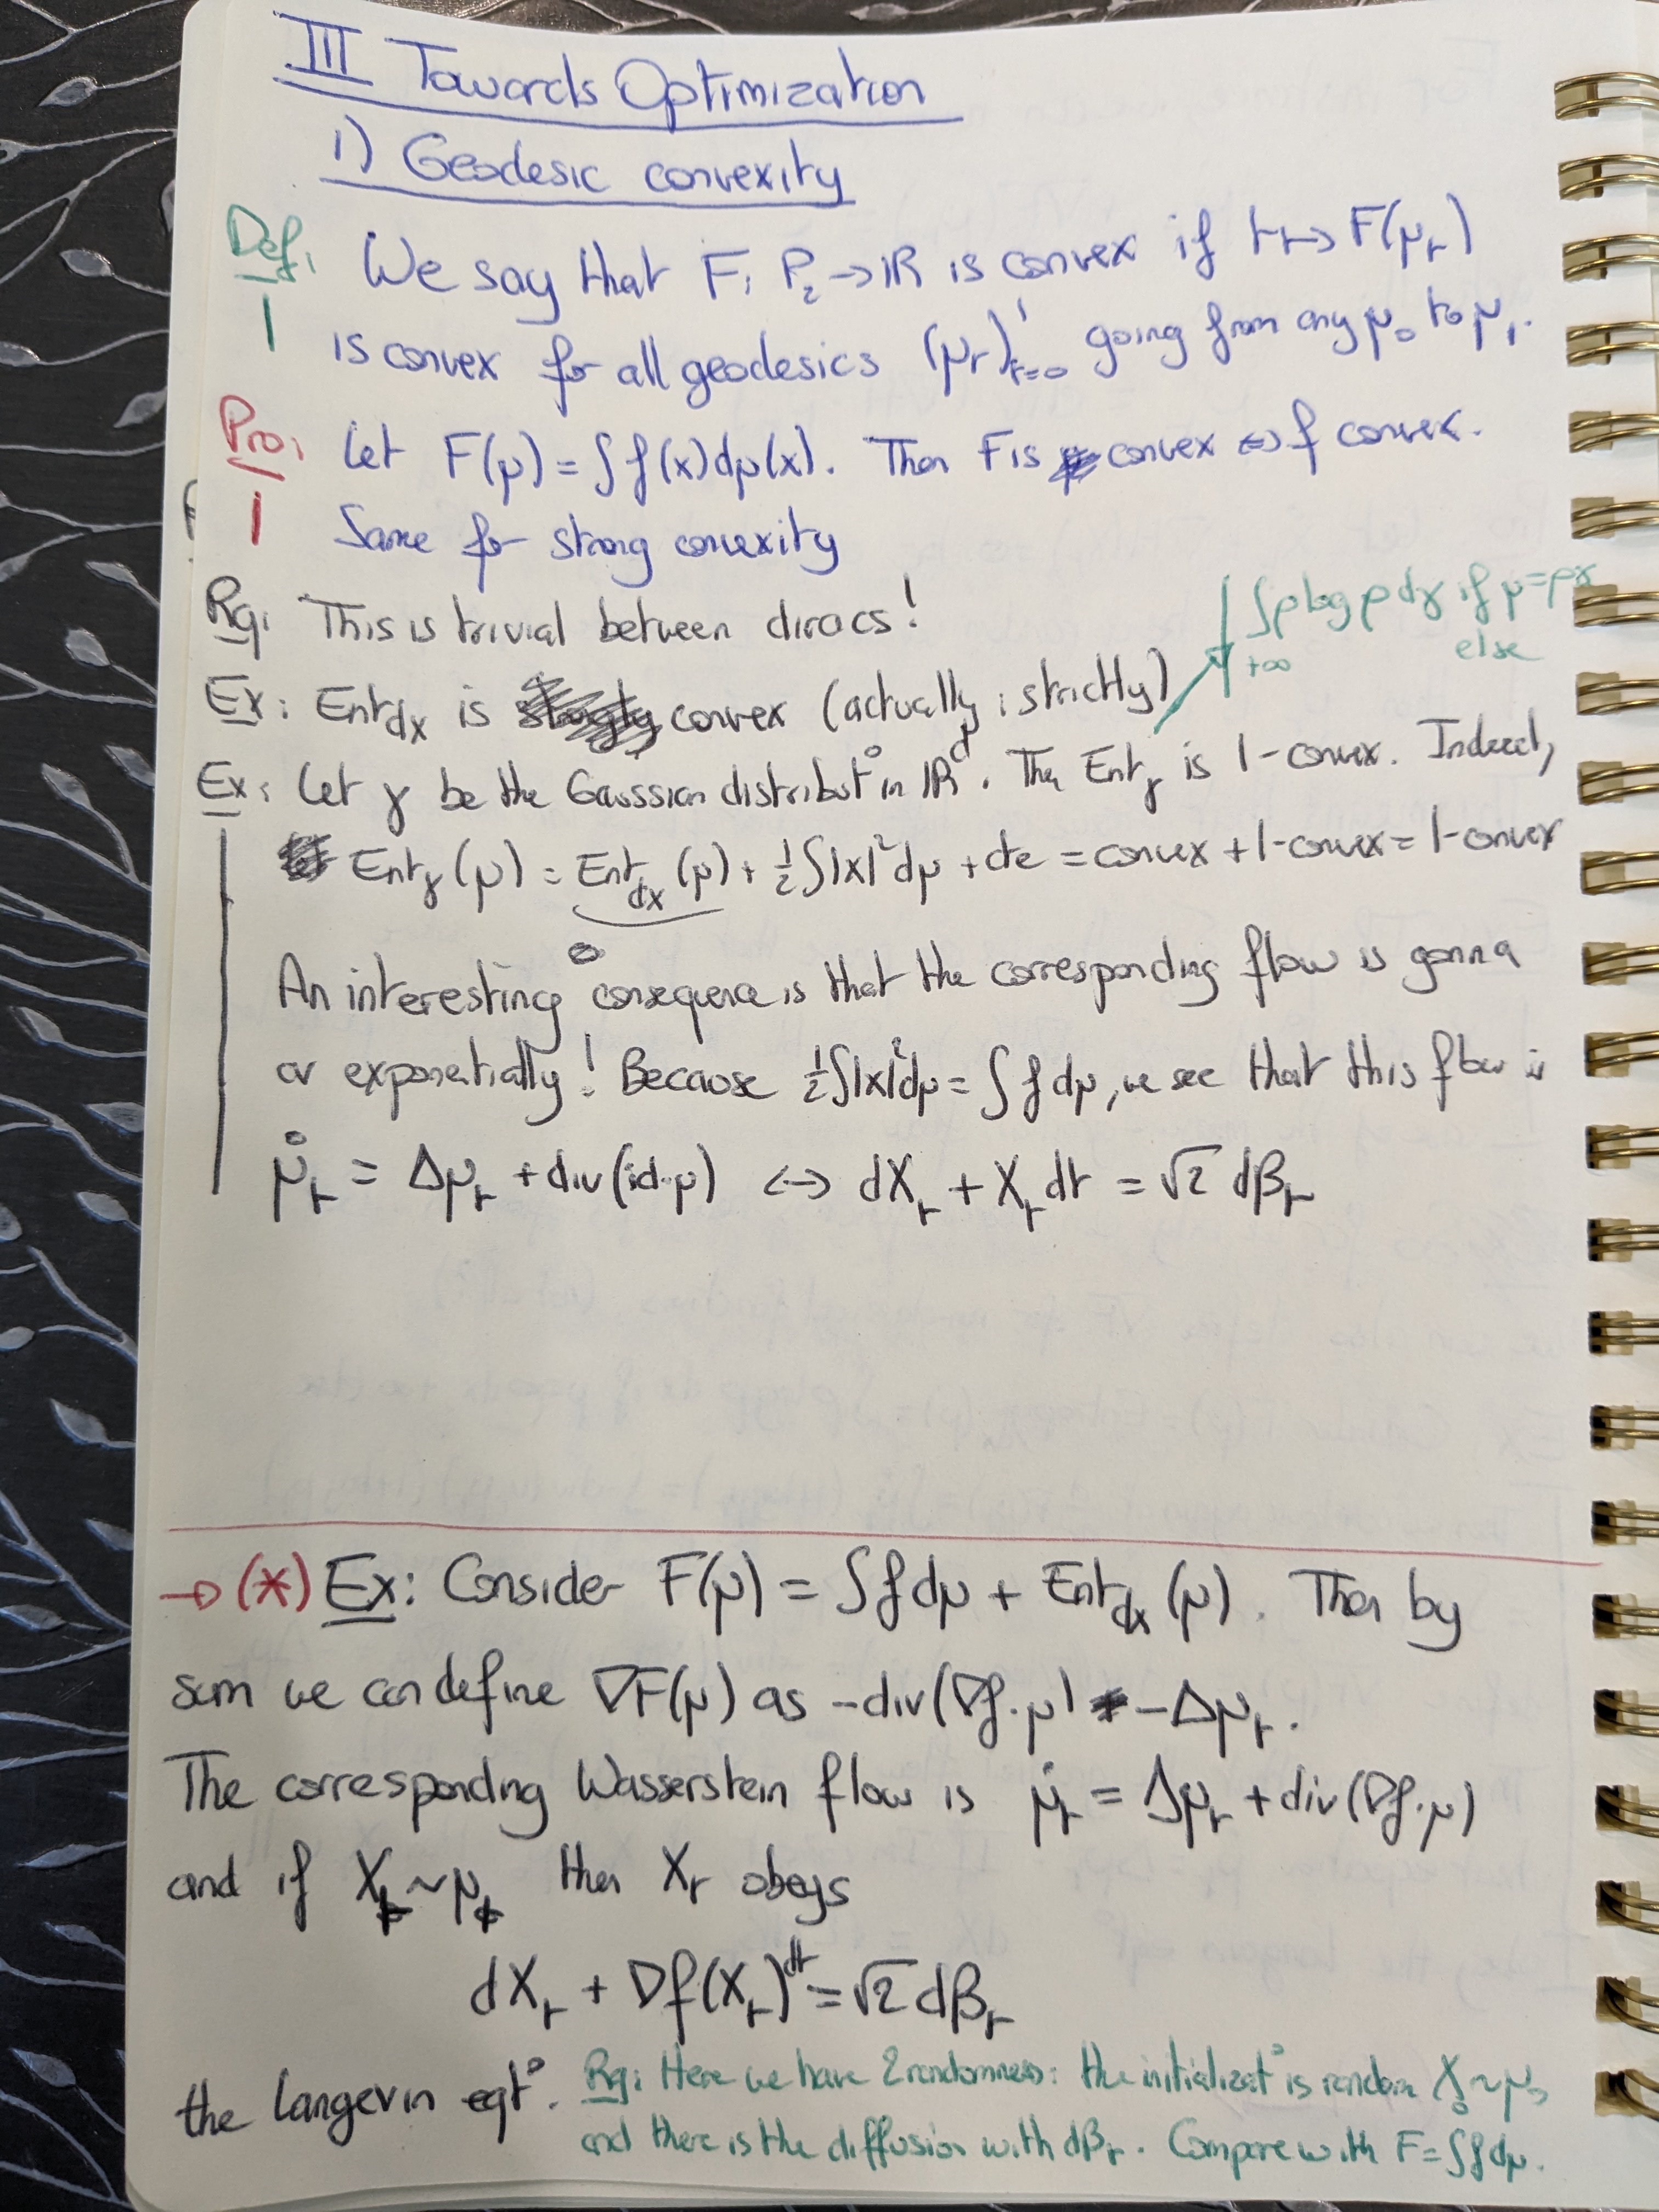 III Towards Optimization
1) Geodesic convexity
Def: We say that F: P₂ → ℝ is convex if t ↦ F(μₜ)
1 is convex for all geodesics (μₜ)¹ₜ₌₀ going from any μ₀ to μ₁.
Pro: Let F(μ) = ∫f(x)dμ(x). Then F is convex ⇔ f convex.
1 Same for strong convexity
Rq: This is trivial between diracs!
∫ρ log ρ dγ if μ=ργ
+∞ else
Ex: Ent_dx is convex (actually: strictly)
Ex: Let γ be the Gaussian distribut° in ℝᵈ. The Ent_γ is 1-convex. Indeed,
Ent_γ(μ) = Ent_dx(μ) + ½∫|x|²dμ + cte = convex + 1-convex = 1-convex
An interesting consequence is that the corresponding flow is gonna
cv exponentially! Because ½∫|x|²dμ = ∫f dμ, we see that this flow is
μ̇ₜ = Δμₜ + div(id·μ) ↔ dXₜ + Xₜdt = √2 dβₜ
→ (*) Ex: Consider F(μ) = ∫f dμ + Ent_dx(μ). Then by
sum we can define ∇F(μ) as -div(∇f·μ) - Δμₜ.
The corresponding Wasserstein flow is μ̇ₜ = Δμₜ + div(∇f·μ)
and if Xₜ ~ μₜ then Xₜ obeys
dXₜ + ∇f(Xₜ)dt = √2 dβₜ
the Langevin eqt°. Rq: Here we have 2 randomness: the initializat° is random X₀~μ₀
and there is the diffusion with dβₜ. Compare with F=∫f dμ.